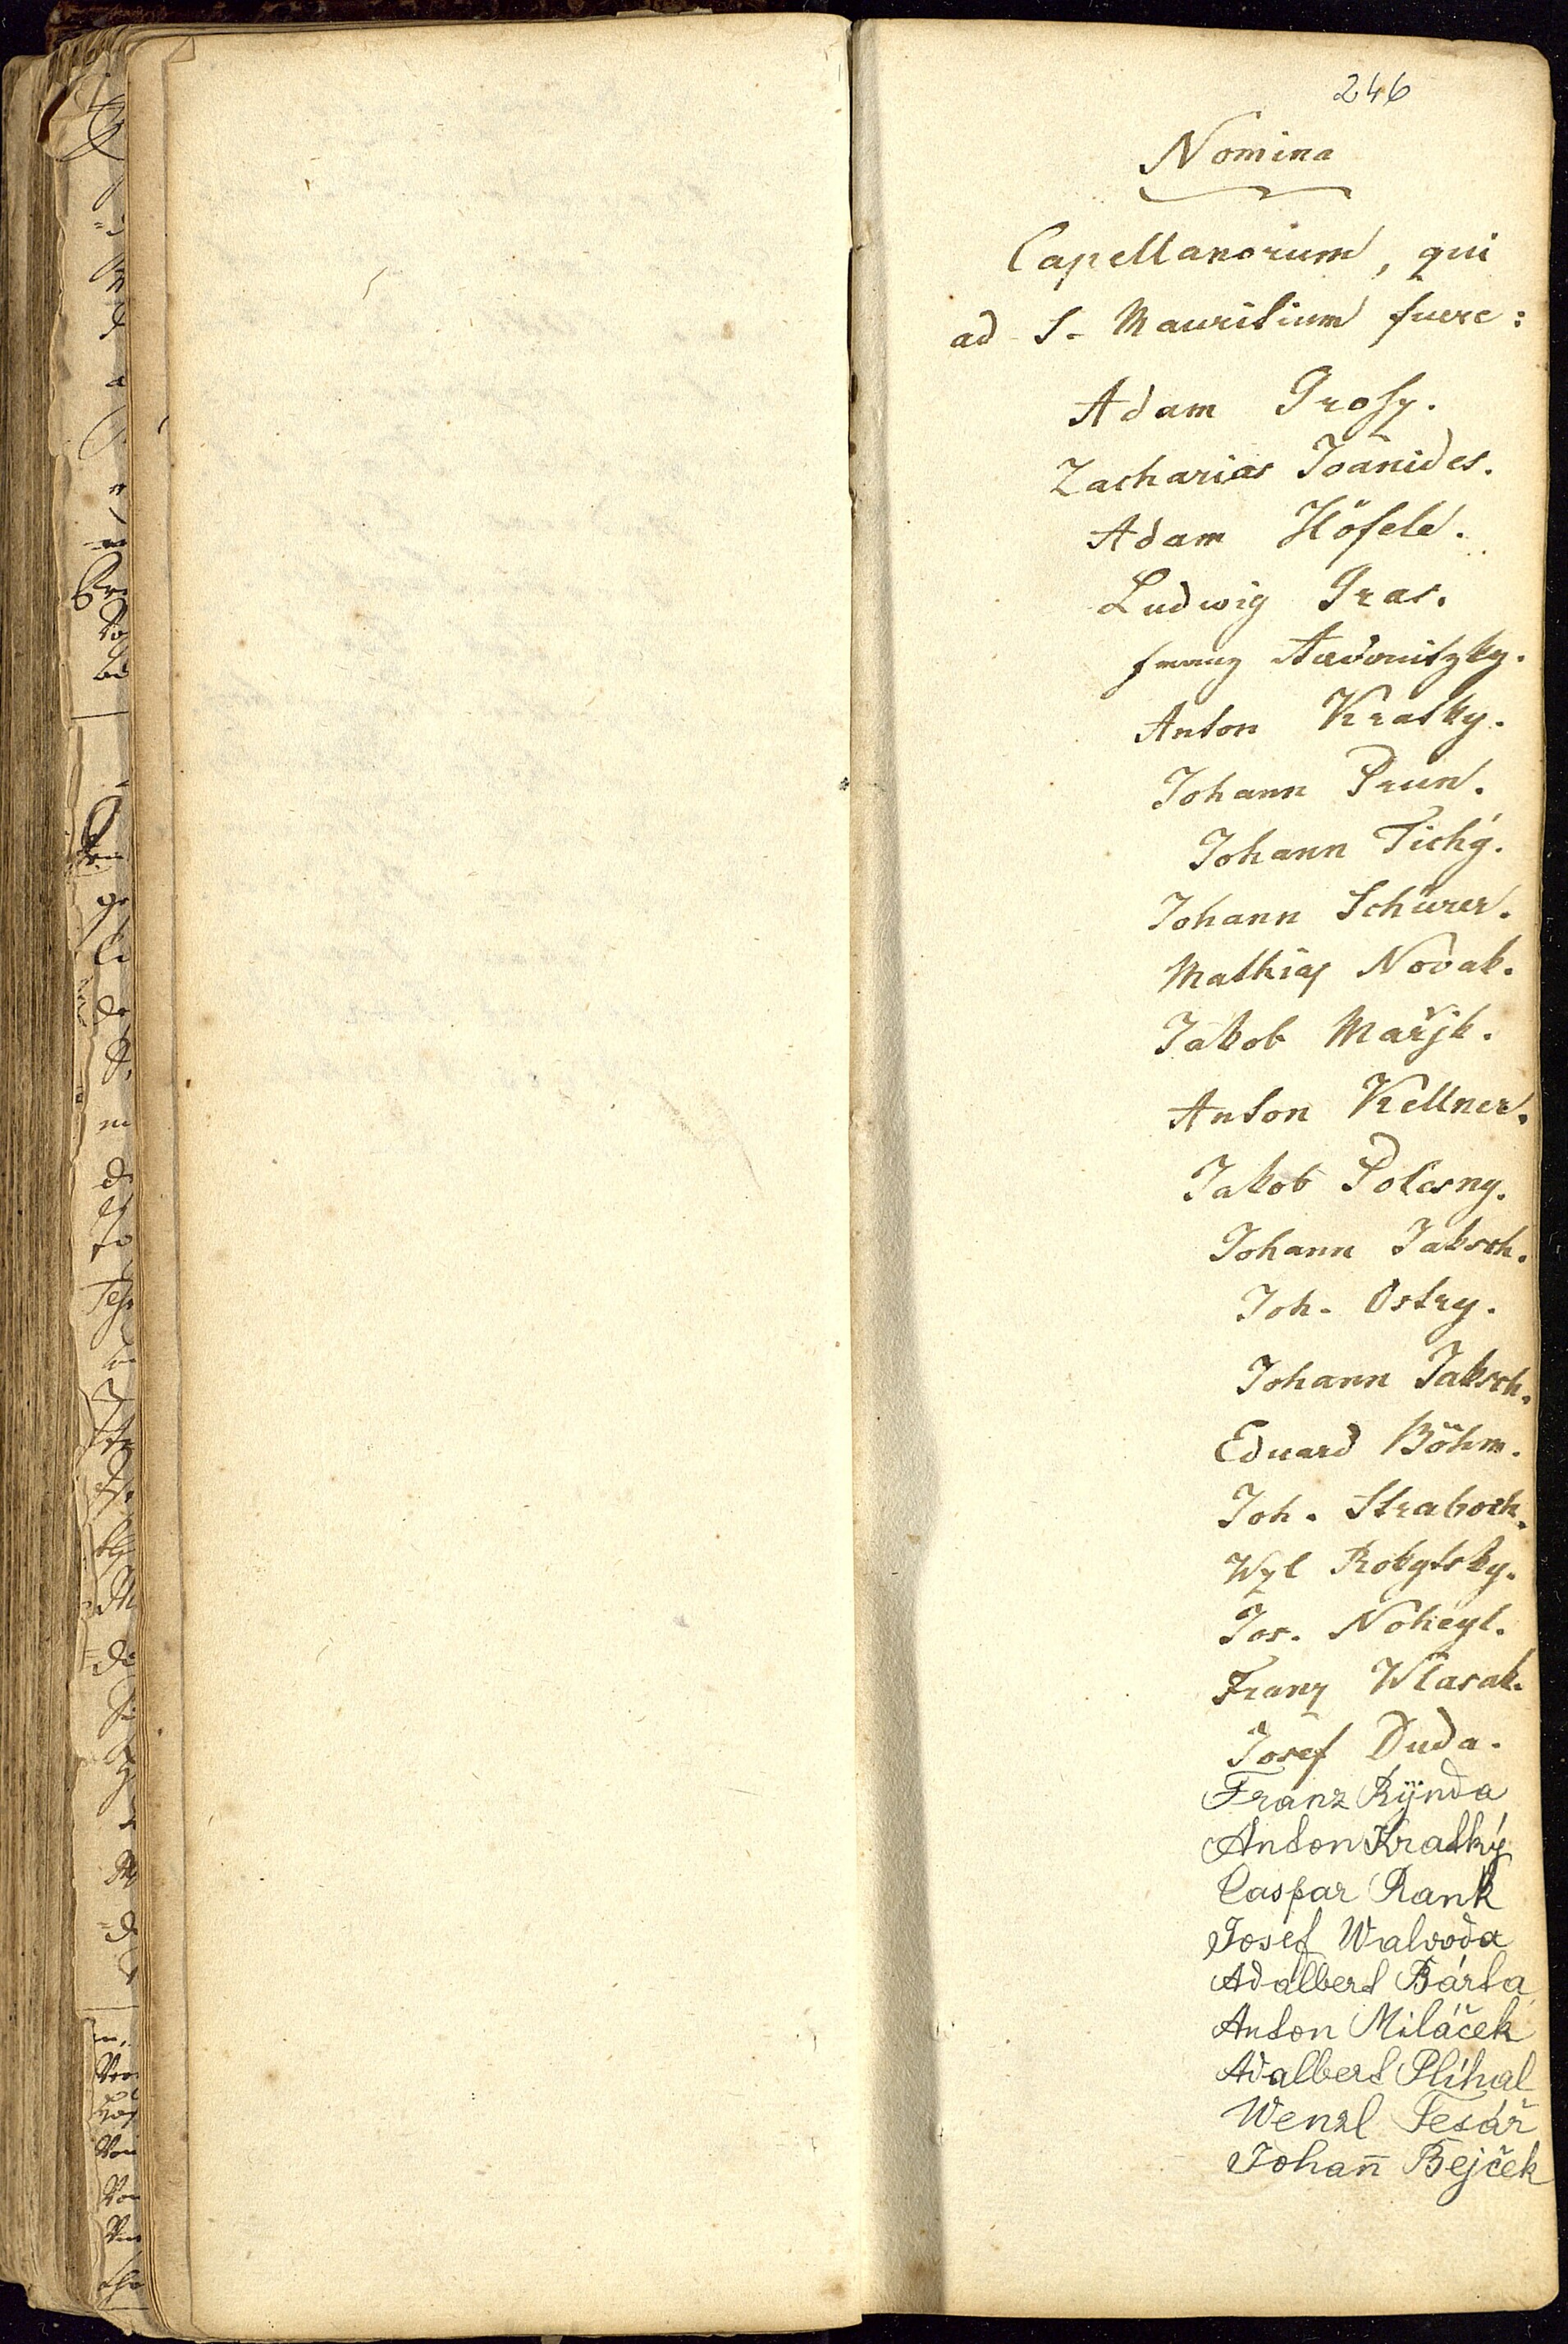 246
Nomina
Capellanorum, qui
ad S. Mauritium fuere:
Adam Grosz.
Zacharias Joānides.
Adam Höfele.
Ludwig Gras.
Franz
Anton Kratky.
Johann Prun.
Johann Tichý.
Johann Schürer.
Mathias Novak.
Jakob Mařjk.
Anton Kellner.
Jakob Polesny.
Johann Jaksch.
Joh. Ostry.
Johann Jaksch.
Eduard Böhm.
Joh. Straboch.
Wzl Rokytsky.
Jos. Noheyl.
Franz Wlasak.
Josef Duda.
Franz Rÿnda
Anton Kratký
Caspar Rank
Josef Walvoda
Adalbert Bárta
Anton Miláček
Adalbert Plíhal
Wenzl Tesář
Johan̄ Bejček